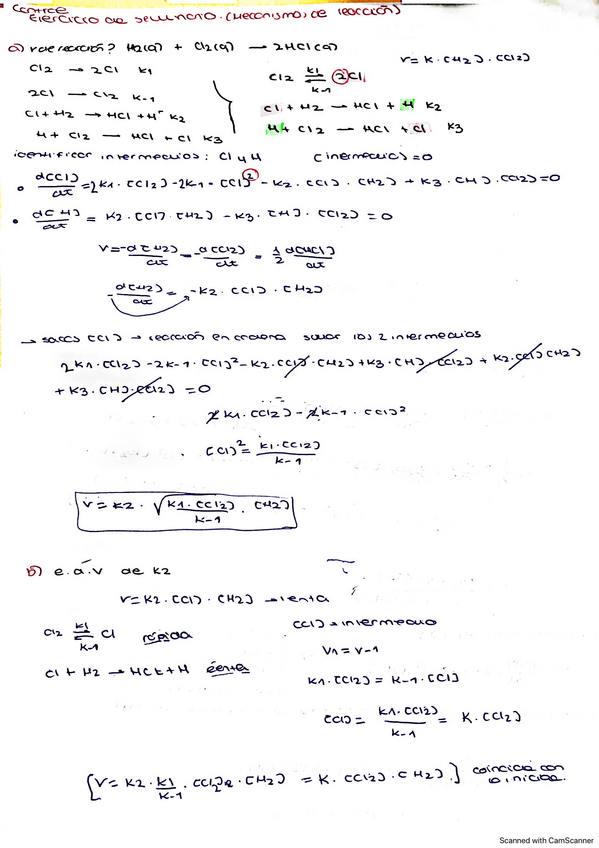 Ejercicio de seminario. (Mecanismos de reacción)
a) v de reacción? H2(g) + Cl2(g) → 2HCl(g)
V = K · [H2] · [Cl2]
Cl2 → 2Cl K1
2Cl → Cl2 K-1
Cl + H2 → HCl + H· K2
H + Cl2 → HCl + Cl K3
Cl2 ⇌ 2Cl K1 K-1
Cl + H2 → HCl + H K2
H + Cl2 → HCl + Cl K3
identificar intermedios: Cl y H [intermedios] = 0
• d[Cl]/dt = 2K1 · [Cl2] - 2K-1 · [Cl]² - K2 · [Cl] · [H2] + K3 · [H] · [Cl2] = 0
• d[H]/dt = K2 · [Cl] · [H2] - K3 · [H] · [Cl2] = 0
V = -d[H2]/dt = -d[Cl2]/dt = 1/2 d[HCl]/dt
-d[H2]/dt = -K2 · [Cl] · [H2]
→ sacas [Cl] → reacción en cadena sumar los 2 intermedios
2K1 · [Cl2] - 2K-1 · [Cl]² - K2 · [Cl] · [H2] + K3 · [H] · [Cl2] + K2 · [Cl] [H2]
+ K3 · [H] · [Cl2] = 0
2K1 · [Cl2] - 2K-1 · [Cl]²
[Cl]² = K1 · [Cl2] / K-1
V = K2 · √(K1 · [Cl2] / K-1) · [H2]
b) e.d.v de K2
V = K2 · [Cl] · [H2] → lenta
Cl2 ⇌ Cl K1 K-1 rápida
Cl + H2 → HCl + H lenta
[Cl] → intermedio
V1 = V-1
K1 · [Cl2] = K-1 · [Cl]
[Cl] = K1 · [Cl2] / K-1 = K · [Cl2]
[V = K2 · K1/K-1 · [Cl2] · [H2] = K · [Cl2] · [H2]] coincide con
la inicial.
Scanned with CamScanner